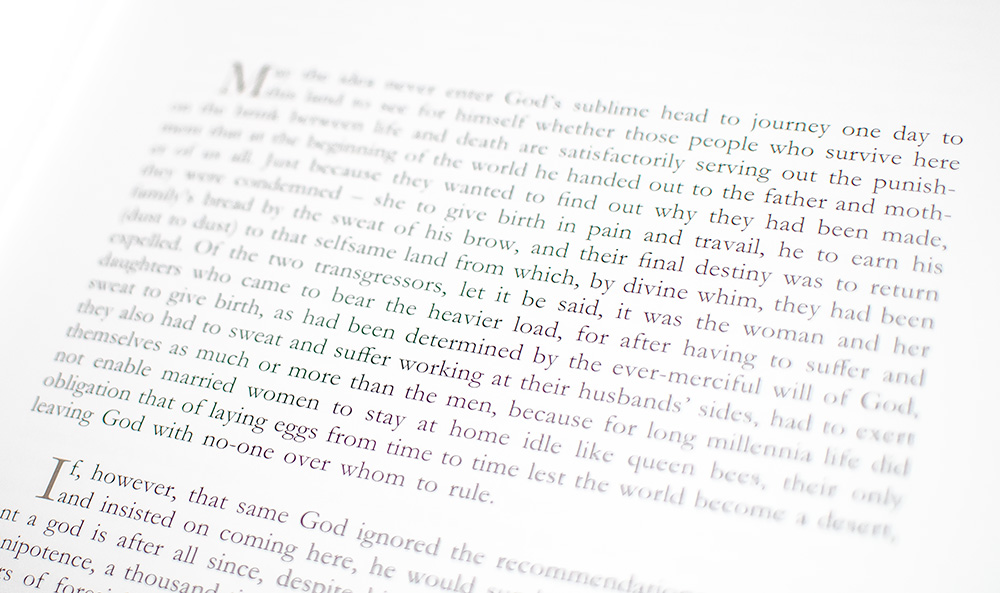 May the idea never enter God's sublime head to journey one day to
this land to see for himself whether those people who survive here
on the brink between life and death are satisfactorily serving out the punish-
ment that at the beginning of the world he handed out to the father and moth-
er of us all. Just because they wanted to find out why they had been made,
they were condemned – she to give birth in pain and travail, he to earn his
family's bread by the sweat of his brow, and their final destiny was to return
(dust to dust) to that selfsame land from which, by divine whim, they had been
expelled. Of the two transgressors, let it be said, it was the woman and her
daughters who came to bear the heavier load, for after having to suffer and
sweat to give birth, as had been determined by the ever-merciful will of God,
they also had to sweat and suffer working at their husbands' sides, had to exert
themselves as much or more than the men, because for long millennia life did
not enable married women to stay at home idle like queen bees, their only
obligation that of laying eggs from time to time lest the world become a desert,
leaving God with no-one over whom to rule.
If, however, that same God ignored the
and insisted on coming here, he would
nt a god is after all since, despite
nipotence, a thousand
rs of